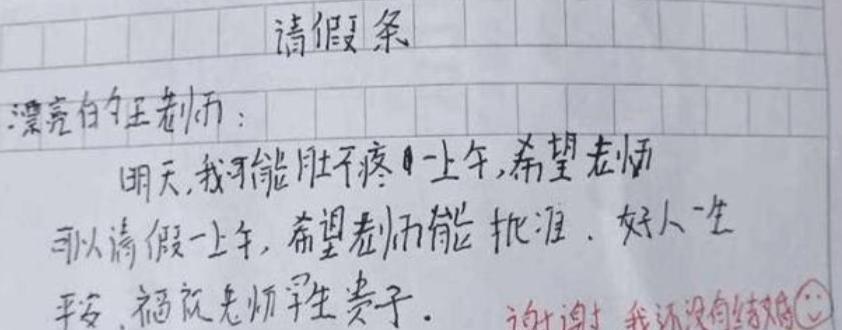 请假条
漂亮的王老师：
明天，我可能肚子疼一上午，希望老师
可以请假一上午，希望老师能批准．好人一生
平安，祝老师早生贵子．
谢谢，我还没有结婚